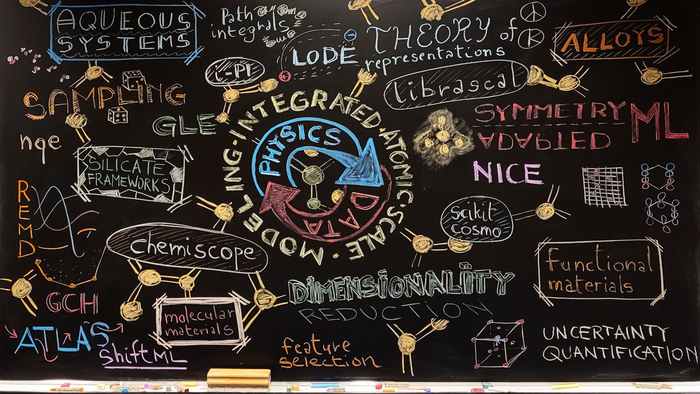 AQUEOUS
SYSTEMS
Path
integrals
LODE
THEORY of
representations
ALLOYS
i-PI
librascal
SAMPLING
GLE
SYMMETRY
ADAPTED
ML
nqe
SILICATE
FRAMEWORKS
INTEGRATED·ATOMIC SCALE·MODELING·
PHYSICS
DATA
NICE
REMD
scikit
cosmo
chemiscope
functional
materials
DIMENSIONALITY
REDUCTION
GCH
molecular
materials
ATLAS
ShiftML
feature
selection
UNCERTAINTY
QUANTIFICATION